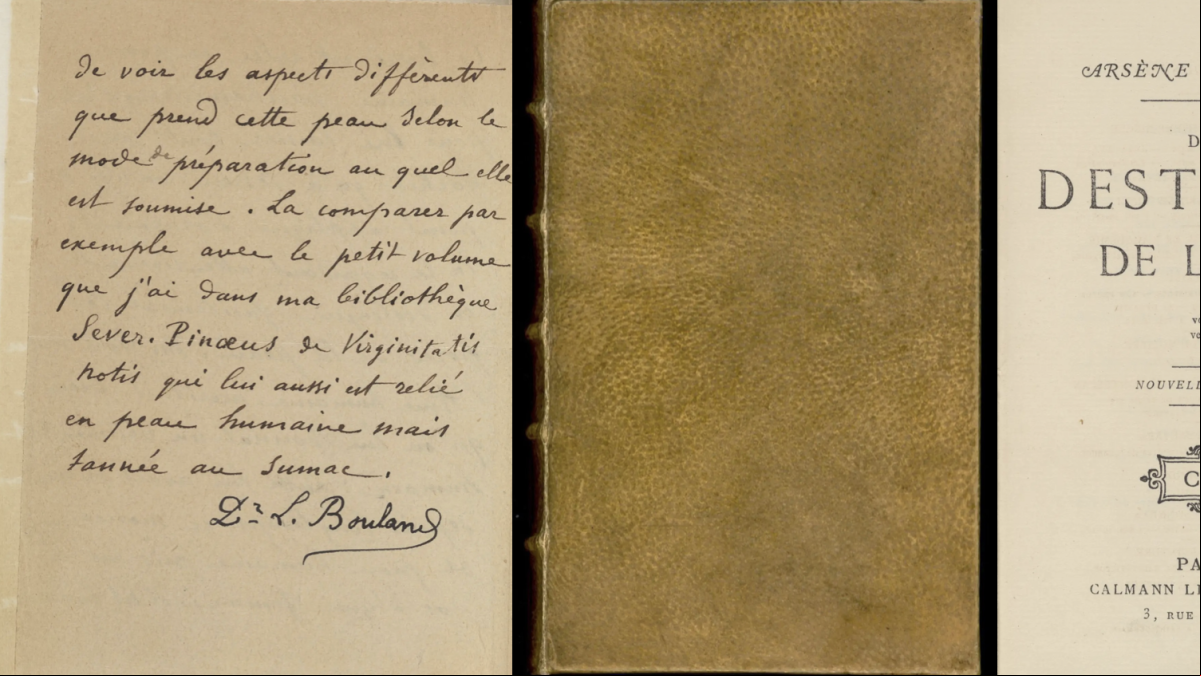 de voir les aspects différents
que prend cette peau selon le
mode de préparation au quel elle
est soumise. La comparer par
exemple avec le petit volume
que j'ai dans ma bibliothèque
Sever. Pinœus de Virginitatis
notis qui lui aussi est relié
en peau humaine mais
tannée au sumac.
Dr L. Bouland
ARSÈNE
D
DEST
DE L
VO
VO
NOUVELL
C
PA
CALMANN LÉ
3, RUE